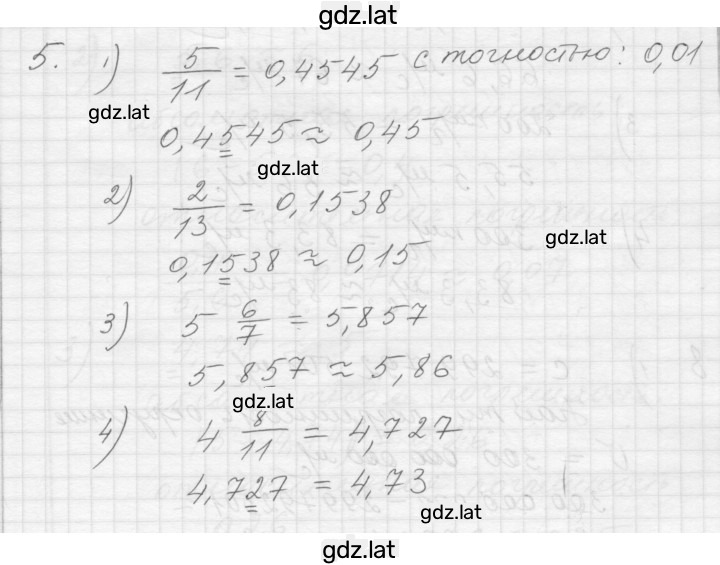 gdz.lat
5. 1) 5/11 = 0,4545 с точностью: 0,01
gdz.lat
0,4545 ≈ 0,45
gdz.lat
2) 2/13 = 0,1538
gdz.lat
0,1538 ≈ 0,15
3) 5 6/7 = 5,857
5,857 ≈ 5,86
gdz.lat
4) 4 8/11 = 4,727
4,727 = 4,73
gdz.lat
gdz.lat